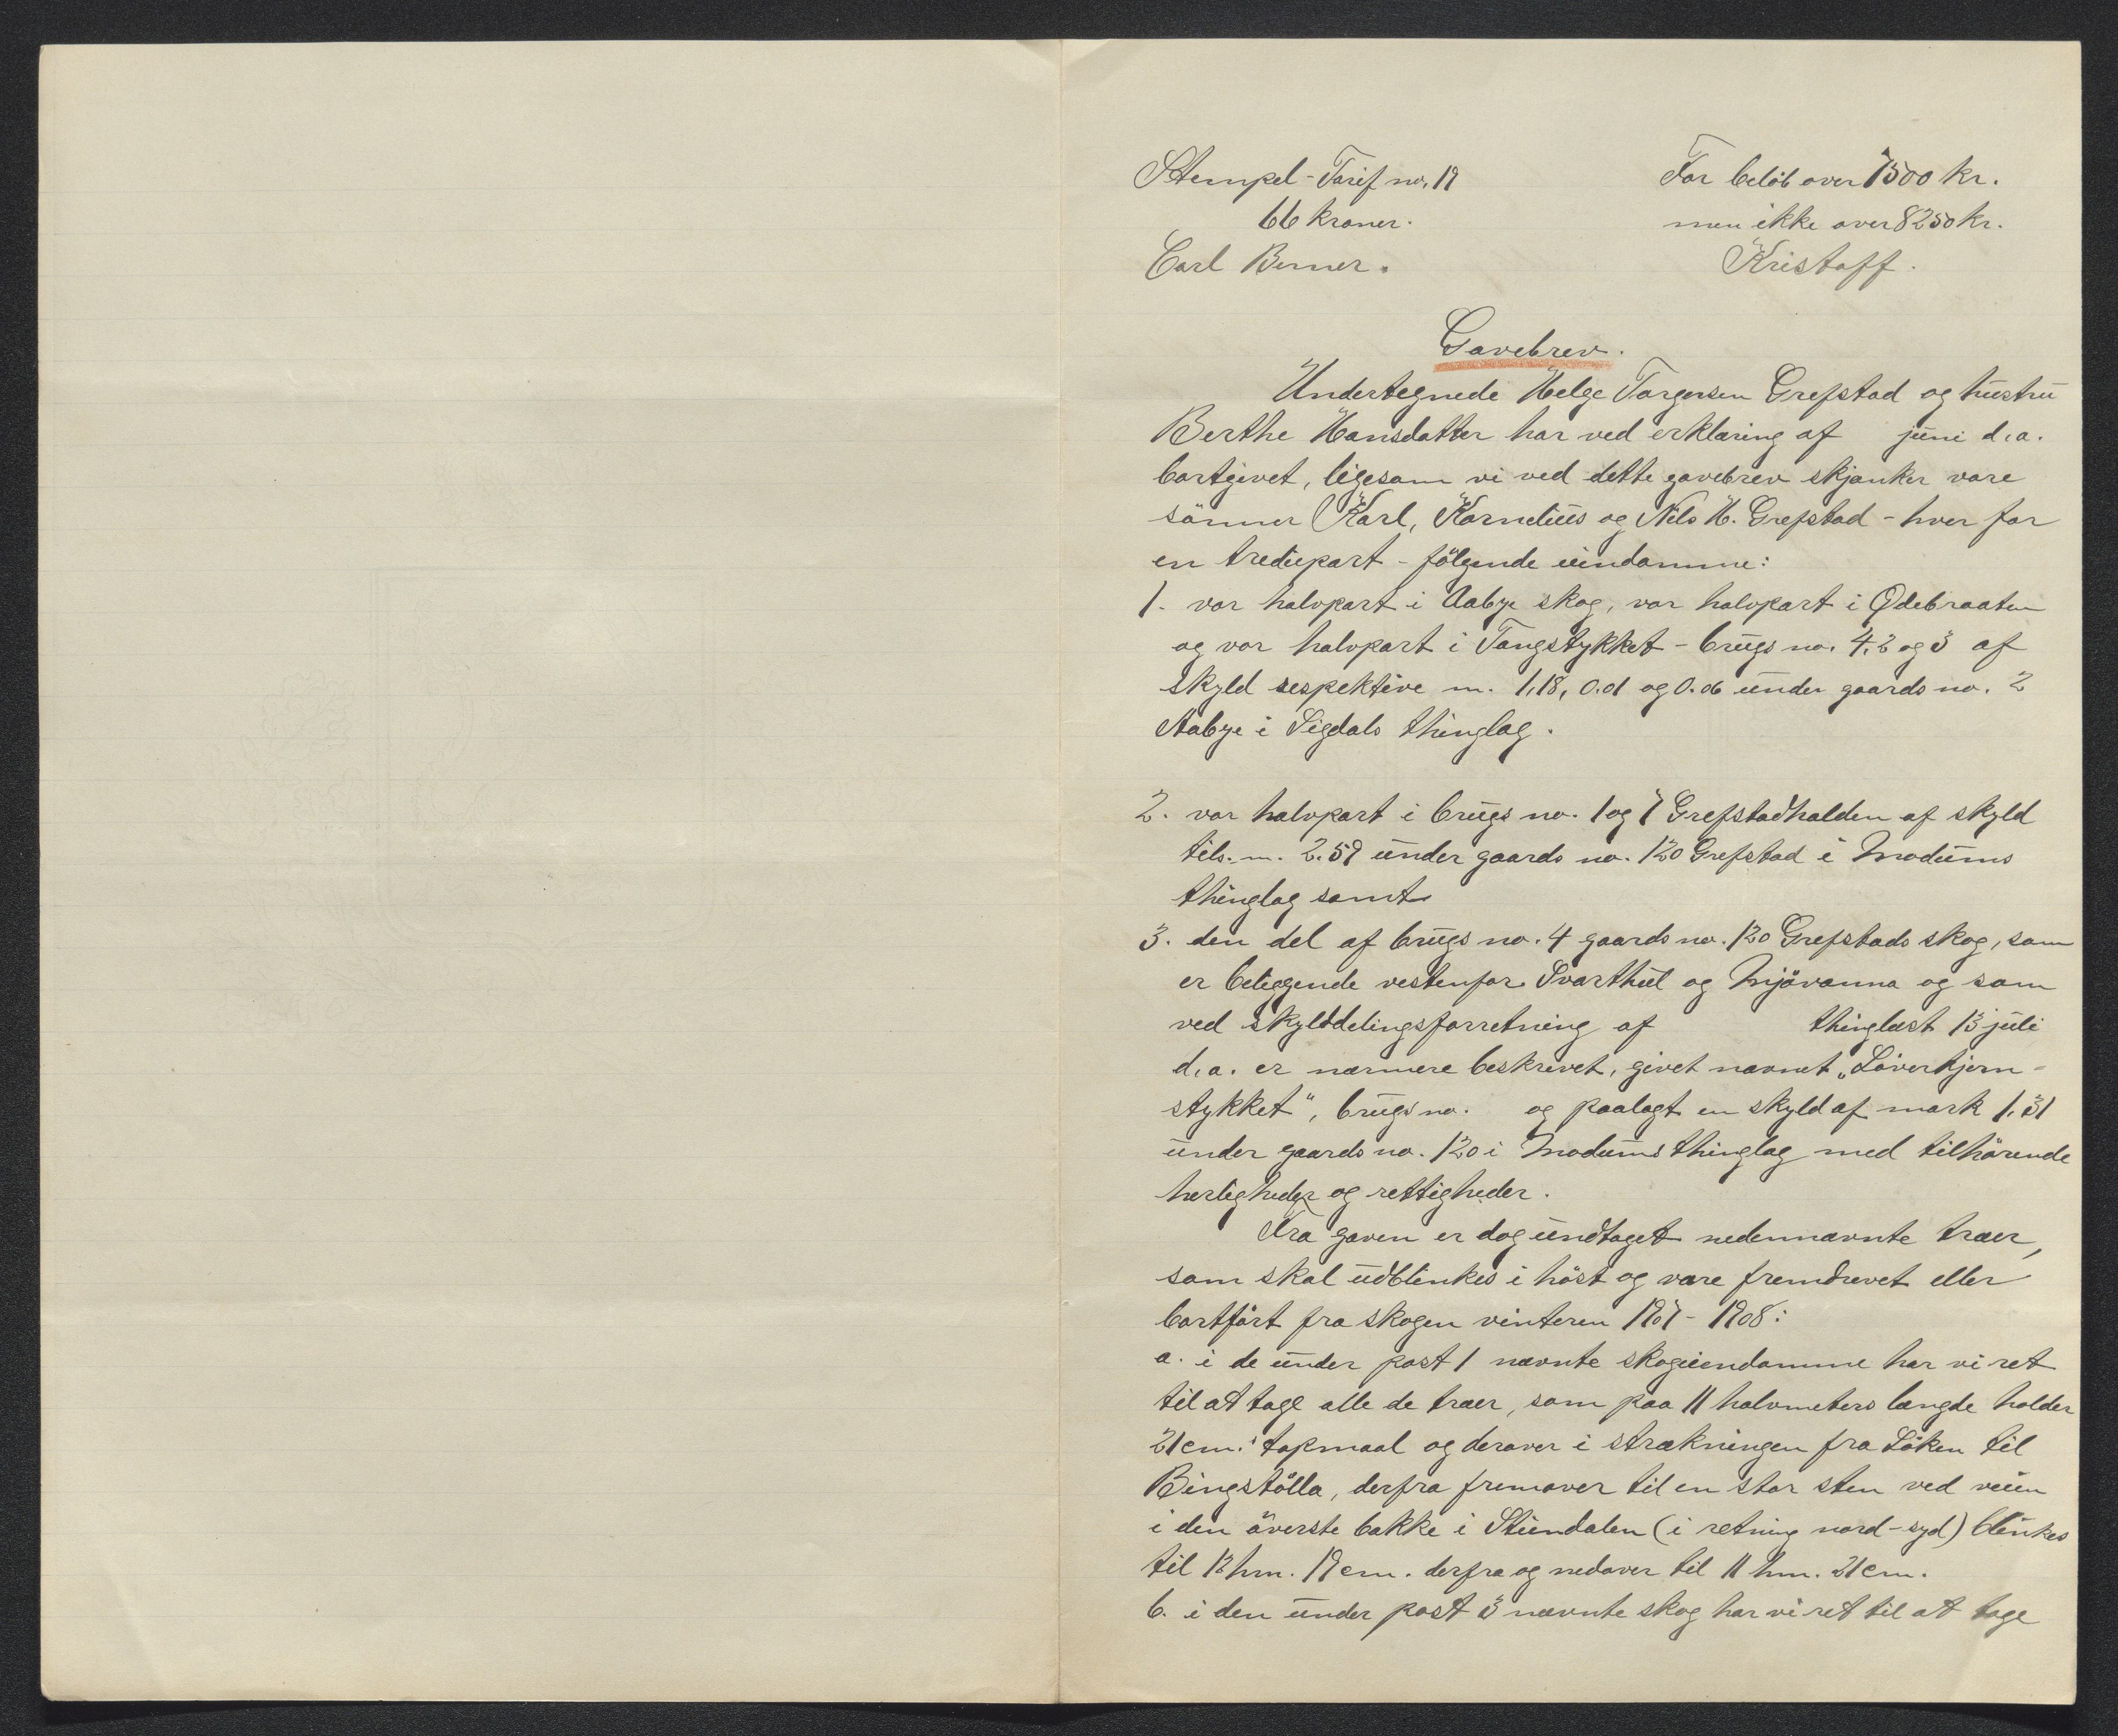 Stempel-Tarif no. 19
66 kroner.
Carl Berner.
For beløb over 7500 kr.
men ikke over 8250 kr.
Kristoff.
Gavebrev.
Undertegnede Helge Torgersen Grefstad og hustru
Berthe Hansdatter har ved erklæring af juni d.a.
bortgivet, ligesom vi ved dette gavebrev skjænker vore
sønner Karl, Kornelius og Nils H. Grefstad - hver for
en trediepart - følgende eiendomme:
1. vor halvpart i Aabye skog, vor halvpart i Ødebraaten
og vor halvpart i Tangstykket - brugs no. 4, 2 og 3 af
skyld respektive m. 1,18, 0.01 og 0.06 under gaards no. 2
Aabye i Sigdals thinglag.
2. vor halvpart i brugs no. 1 og 7 Grefstadhalden af skyld
tils. m. 2.59 under gaards no. 120 Grefstad i Modums
thinglag samt
3. den del af brugs no. 4 gaards no. 120 Grefstads skog, som
er beliggende vestenfor Svarthul og Mjøvanna og som
ved skylddelingsforretning af thinglæst 13 juli
d.a. er nærmere beskrevet, givet navnet "Løvertjern-
stykket", brugs no. og paalagt en skyld af mark 1.31
under gaards no. 120 i Modums thinglag med tilhørende
herligheder og rettigheder.
Fra gaven er dog undtaget nedennævnte træer,
som skal udblinkes i høst og være fremdrevet eller
bortført fra skogen vinteren 1907 - 1908:
a. i de under post 1 nævnte skogeiendomme har vi ret
til at tage alle de træer, som paa 11 halvmeters længde holder
21 cm. topmaal og derover i strækningen fra Løken til
Bingstølla, derfra fremover til en stor sten ved veien
i den øverste bakke i Stundalen (i retning nord-syd) blinkes
til 12 hm. 19 cm. derfra og nedover til 11 hm. 21 cm.
b. i den under post 3 nævnte skog har vi ret til at tage